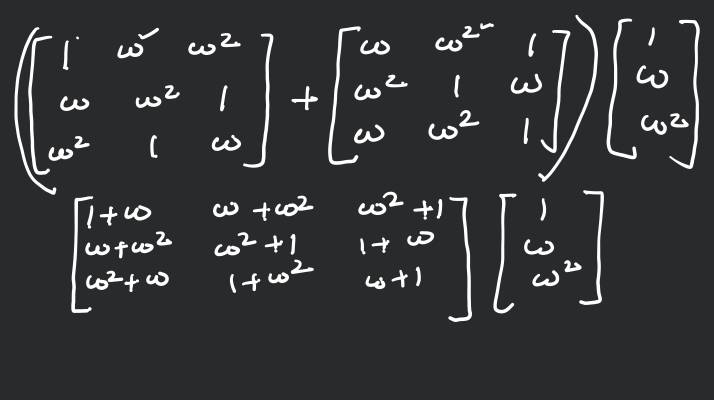 ([1 ω ω² ; ω ω² 1 ; ω² 1 ω] + [ω ω² 1 ; ω² 1 ω ; ω ω² 1]) [1 ; ω ; ω²]
[1+ω ω+ω² ω²+1 ; ω+ω² ω²+1 1+ω ; ω²+ω 1+ω² ω+1] [1 ; ω ; ω²]